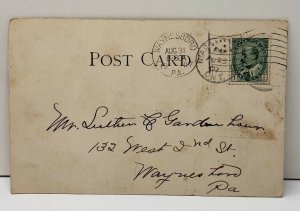 WAYNESBORO
AUG 31
PA.
POST CARD
ONT.
Mr. Luther G Gardenhour
132 West 2nd St.
Waynesboro
Pa